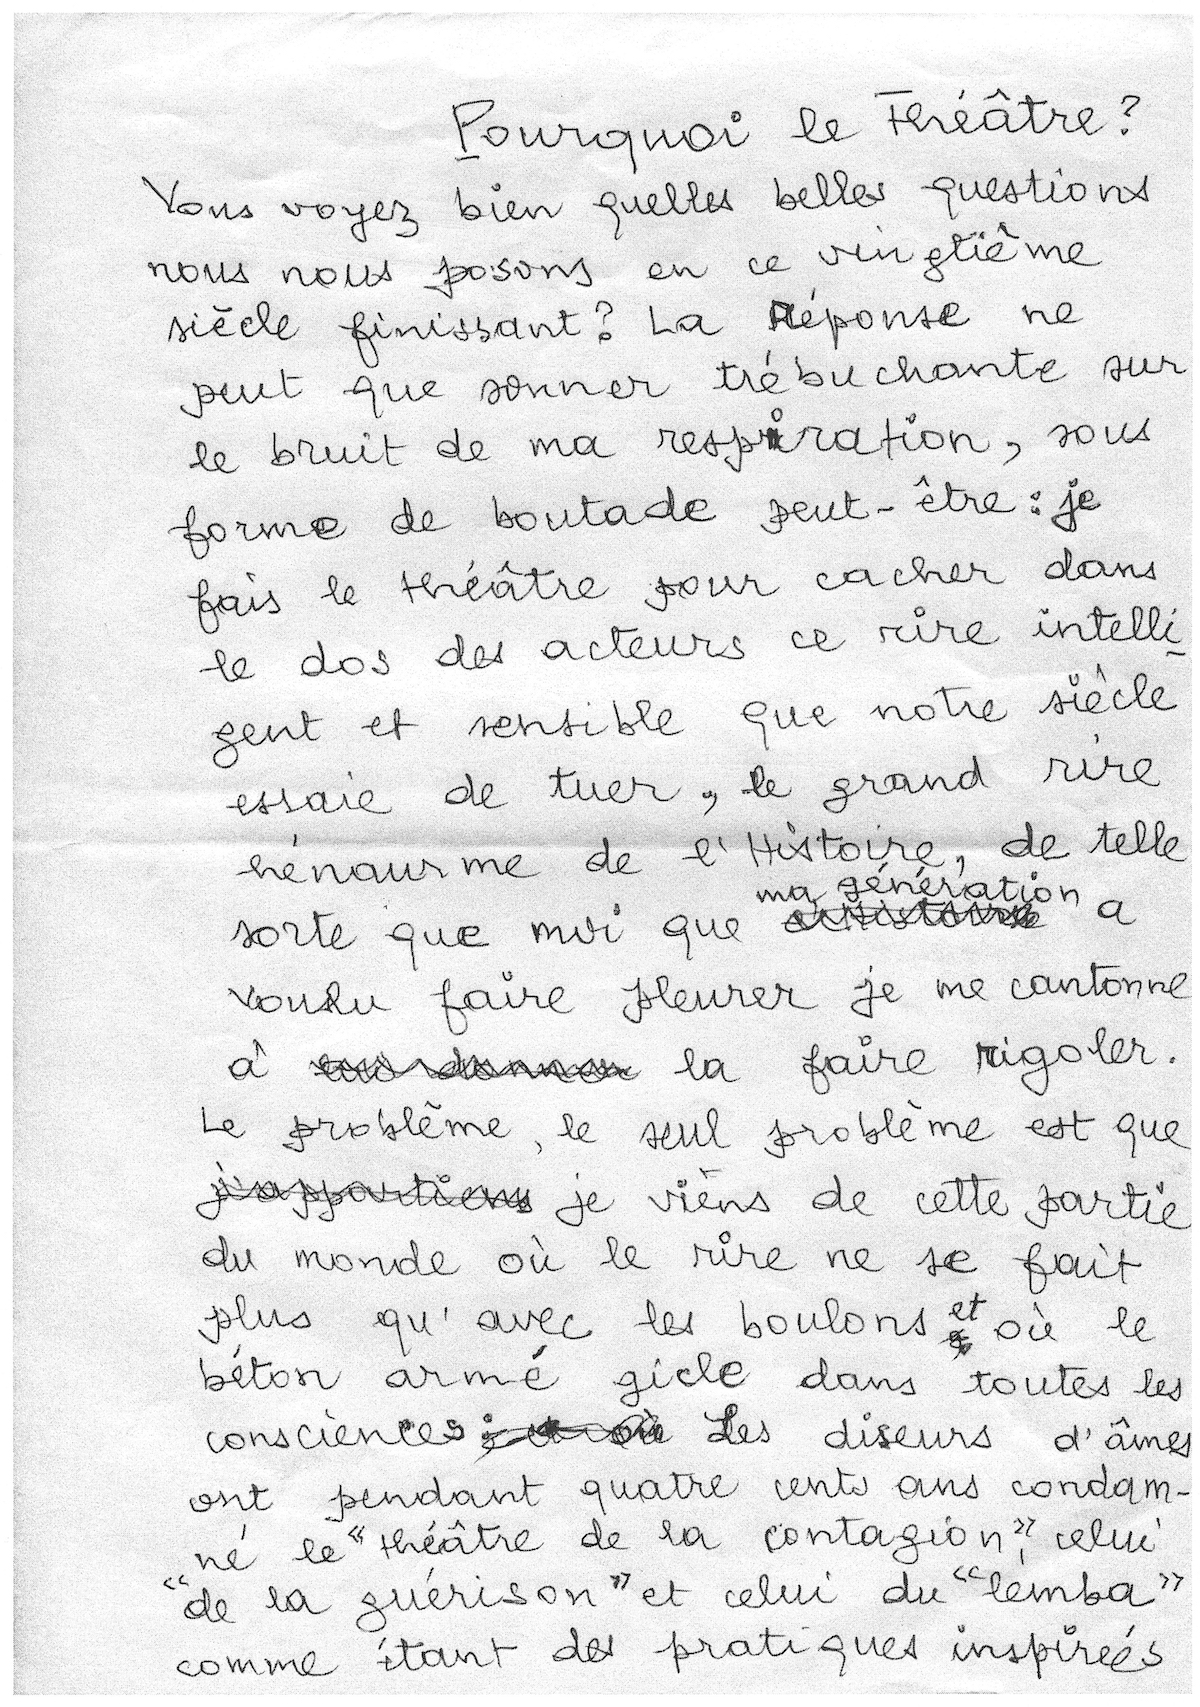 Pourquoi le Théâtre?
Vous voyez bien quelles belles questions
nous nous posons en ce vingtième
siècle finissant? La Réponse ne
peut que sonner trébuchante sur
le bruit de ma respiration, sous
forme de boutade peut-être: je
fais le théâtre pour cacher dans
le dos des acteurs ce rire intelli-
gent et sensible que notre siècle
essaie de tuer, le grand rire
hénaurme de l'Histoire, de telle
ma génération
sorte que moi que a
voulu faire pleurer je me cantonne
à la faire rigoler.
Le problème, le seul problème est que
j'appartiens je viens de cette partie
du monde où le rire ne se fait
plus qu'avec les boulons et où le
béton armé gicle dans toutes les
consciences Les diseurs d'âmes
ont pendant quatre cents ans condam-
né le "théâtre de la contagion", celui
"de la guérison" et celui du "lemba"
comme étant des pratiques inspireés